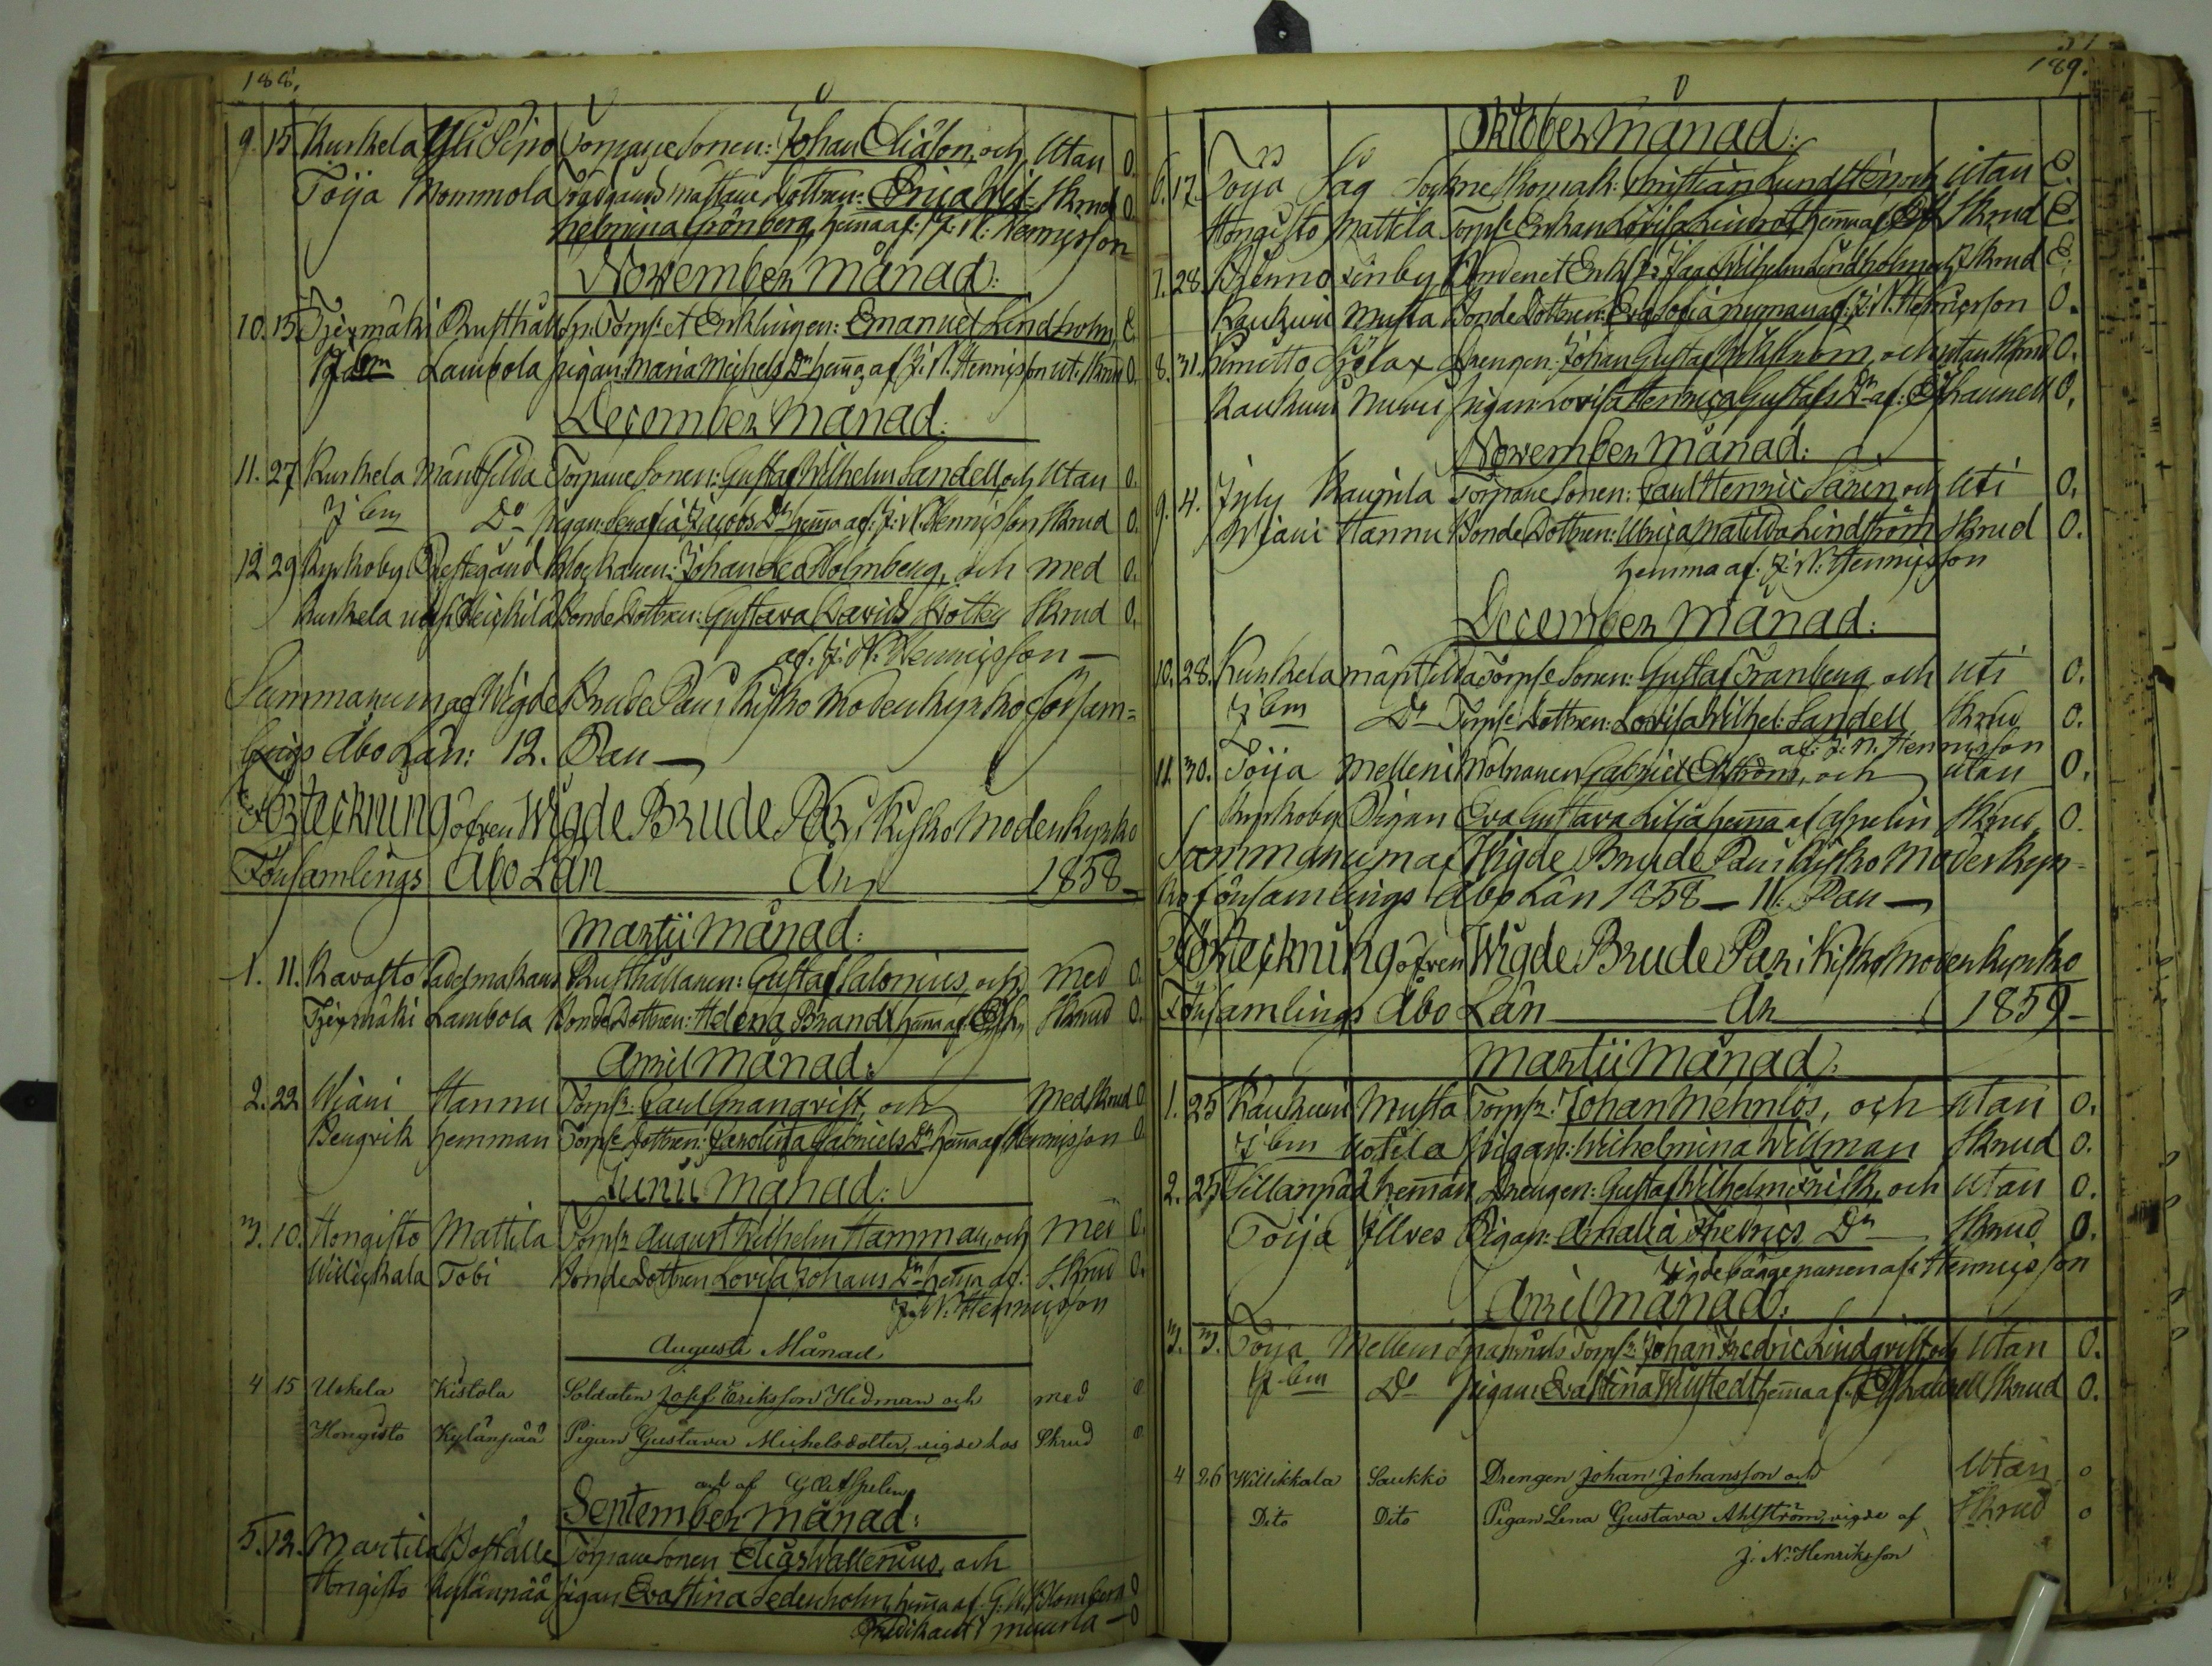 188.
9. 15 Kurkela Yli Sipo Torpare Sonen: Johan Eliäson, och Utan 0.
Toija Mommola Trädgårds mästare Dottren: Erica Wil- Skrud 0.
helmina Grönberg, hemma af: J: N: Henricsson
November Månad:
10. 15 Rusthåll Torp: et Enklingen: Emanuel Lindholm, 0
Idem Lambola pigan: Maria Michels Dr hema af J: N: Henricsson ut. Skrud 0.
December Månad:
11. 27 Kurkela Torpare Sonen: Gustaf Wilhelm Sandell, och Utan 0.
Idem Do pigan: Jacobs Dr hema af: J: N: Henricsson Skrud 0.
12 29 Kyrkoby Prestegård Klockaren: Johan Holmberg, och med 0.
Kurkela Heickilä Bonde Dottren: Gustava Davids Dotter Skrud 0.
af: J: N: Henricsson —
Summarum af Wigde Brude Par i Kisko Moderkyrko försam=
lings Åbo Län: 12. Par —
Förteckning öfver Wigde Brude Par i Kisko Moderkyrko
Församlings Åbo Län År 1858
Martii Månad:
1. 11. Kavasto Rusthållaren: Gustaf Salonius, och Med 0.
Lambola Bonde Dottren: Helena Brandt hema af: Skrud 0.
April Månad:
2. 22 Wiari Hannu Torpr: Carl Granqvist, och Med Skrud 0
Bengvik hemman Torpe Dottren: Karolina Gabriels Dr hema af Henricsson 0
Junii Månad:
3. 10. Hongisto Mattila Torpr August Wilhelm Hamman, och Med 0.
Willickala Tobi Bonde Dottren Lovisa Johans Dr hema af: Skrud 0.
J: N: Henricsson
Augusti Månad
4 15 Uskela Kistola Soldaten Josef Eriksson Hedman och med 0
Hongisto Kylänpää Pigan Gustava Michelsdotter, vigde hos Skrud 0
September Månad:
5. 12. Martila Boställe Torpare Sonen Elias Wallenius, och
Hongisto Kylänpää pigan Eva Stina Sederholm, hema af. G. W. Blomberg 0
Predikant i Muurla — 0
189.
Oktober Månad:
6. 17. Toija Såg Sockne Skomak: Christian Lundsten och Utan 0.
Hongisto Mattila Torpe Enkan Lovisa hema af Skrud 0.
7. 28. Finby Bonden et Enkl: Isac Wilhelm Lindholm, och Skrud 0.
Kaukuri Musta Bonde Dottren: Eva Sofia Nyman af: J: N: Henricsson 0.
8. 31. Kimitto Drengen: Johan Gustaf Wikström, och utan Skrud 0.
Kaukuri Nurmi pigan: Lovisa Henrica Gustafs Dr af: Skaurell 0.
November Månad:
9. 4. Jyly Kaupila Torpare Sonen: Carl Henric Sarén, och Uti 0.
Wiari Hannu Bonde Dottren: Ulrica Matilda Lindström Skrud 0.
hemma af: J: N: Henricsson
December Månad:
10. 28. Kurkela Torpe Sonen: Gustaf Granberg och Uti 0.
Idem Do Torpe Dottren: Lovisa Wilhel: Sandell Skrud 0.
af: J: N. Henricsson
11. 30. Toija Melleri Mölnaren Gabriel Ekström, och utan 0.
Kyrkoby Pigan Eva Gustava Lilja hema af Aspelin Skrud 0.
Summarum af Wigde Brude Par i Kisko Moderkyr-
ko församlings Åbo Län 1858 — 11. Par —
Förteckning öfver Wigde Brude Par i Kisko Moderkyrko
Församlings Åbo Län År 1859 —
Martii Månad:
1. 25 Kaukuri Musta Torpr: Johan Mehnlös, och Utan 0.
Idem Kotila Pigan: Wilhelmina Willman Skrud 0.
2. 25 Sillanpää hemman Drengen: Gustaf Wilhelm Frisk, och Utan 0.
Toija Illves Pigan: Amalia Fredrics Dr Skrud 0.
Wigde bägge paren af: Henricsson
April Månad:
3. 3. Toija Melleri Torpr: Johan Fredric Lindqvist, och Utan 0.
Idem Do pigan: Eva Stina hema af: Skaurell Skrud 0.
4 26 Willikkala Saukko Drengen Johan Johansson och Utan 0
Dito Dito Pigan Lena Gustava Ahlström, vigde af Skrud 0
J. N. Henriksson